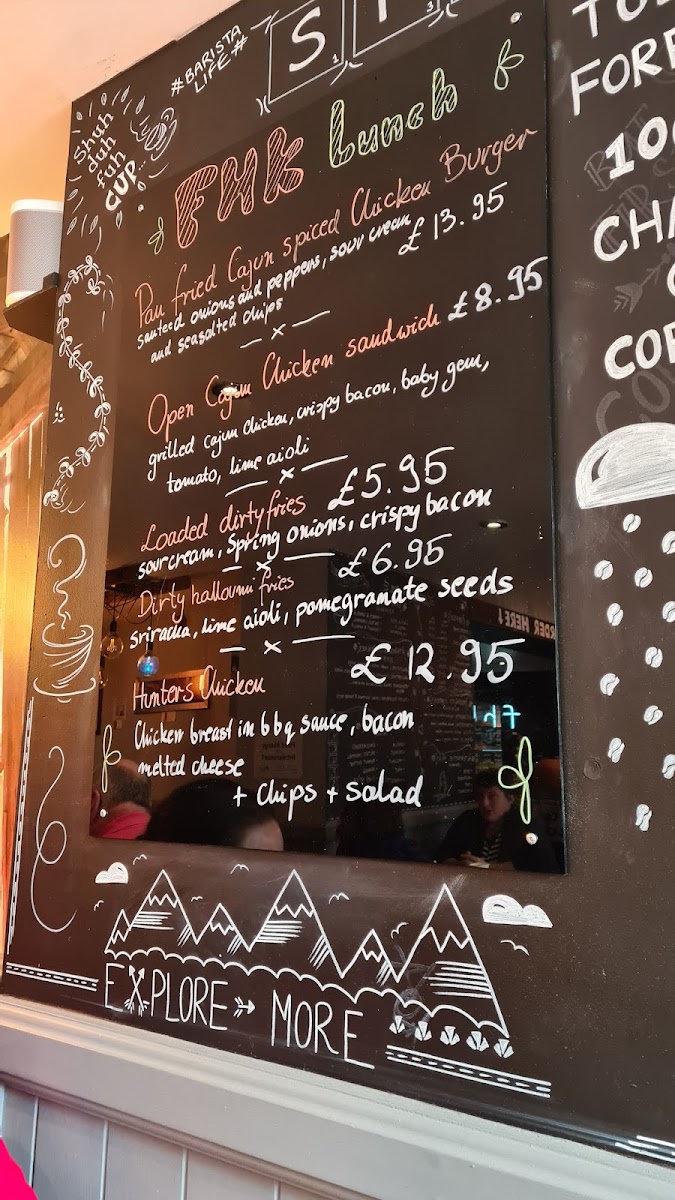 #BARISTA
LIFE#
S 1
3
Shuh
duh
fuh
CUP...
FHK Lunch
Pan fried Cajun spiced Chicken Burger
£ 13.95
sauteed onions and peppers, sour cream
and seasalted chips
Open Cajun Chicken sandwich £8.95
grilled Cajun Chicken, crispy bacon, baby gem,
tomato, lime aioli
Loaded dirty fries £5.95
sourcream, Spring onions, crispy bacon
Dirty halloumi fries £6.95
sriracha, lime aioli, pomegranate seeds
Hunters Chicken £12.95
Chicken breast in bbq sauce, bacon
melted cheese
+ Chips + Salad
EXPLORE MORE
100
CHA